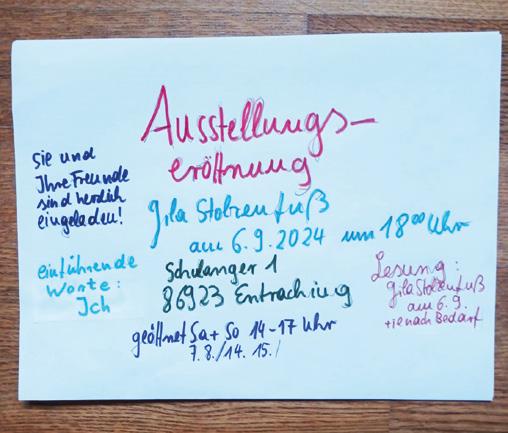 Ausstellungs-
eröffnung
Sie und
Ihre Freunde
sind herzlich
eingeladen!
Gila Stolzenfuß
am 6.9.2024 um 18⁰⁰ Uhr
einführende
Worte:
Ich
Schulanger 1
86923 Entraching
Lesung:
Gila Stolzenfuß
am 6.9.
+ je nach Bedarf
geöffnet Sa + So 14-17 Uhr
7.8./14.15./